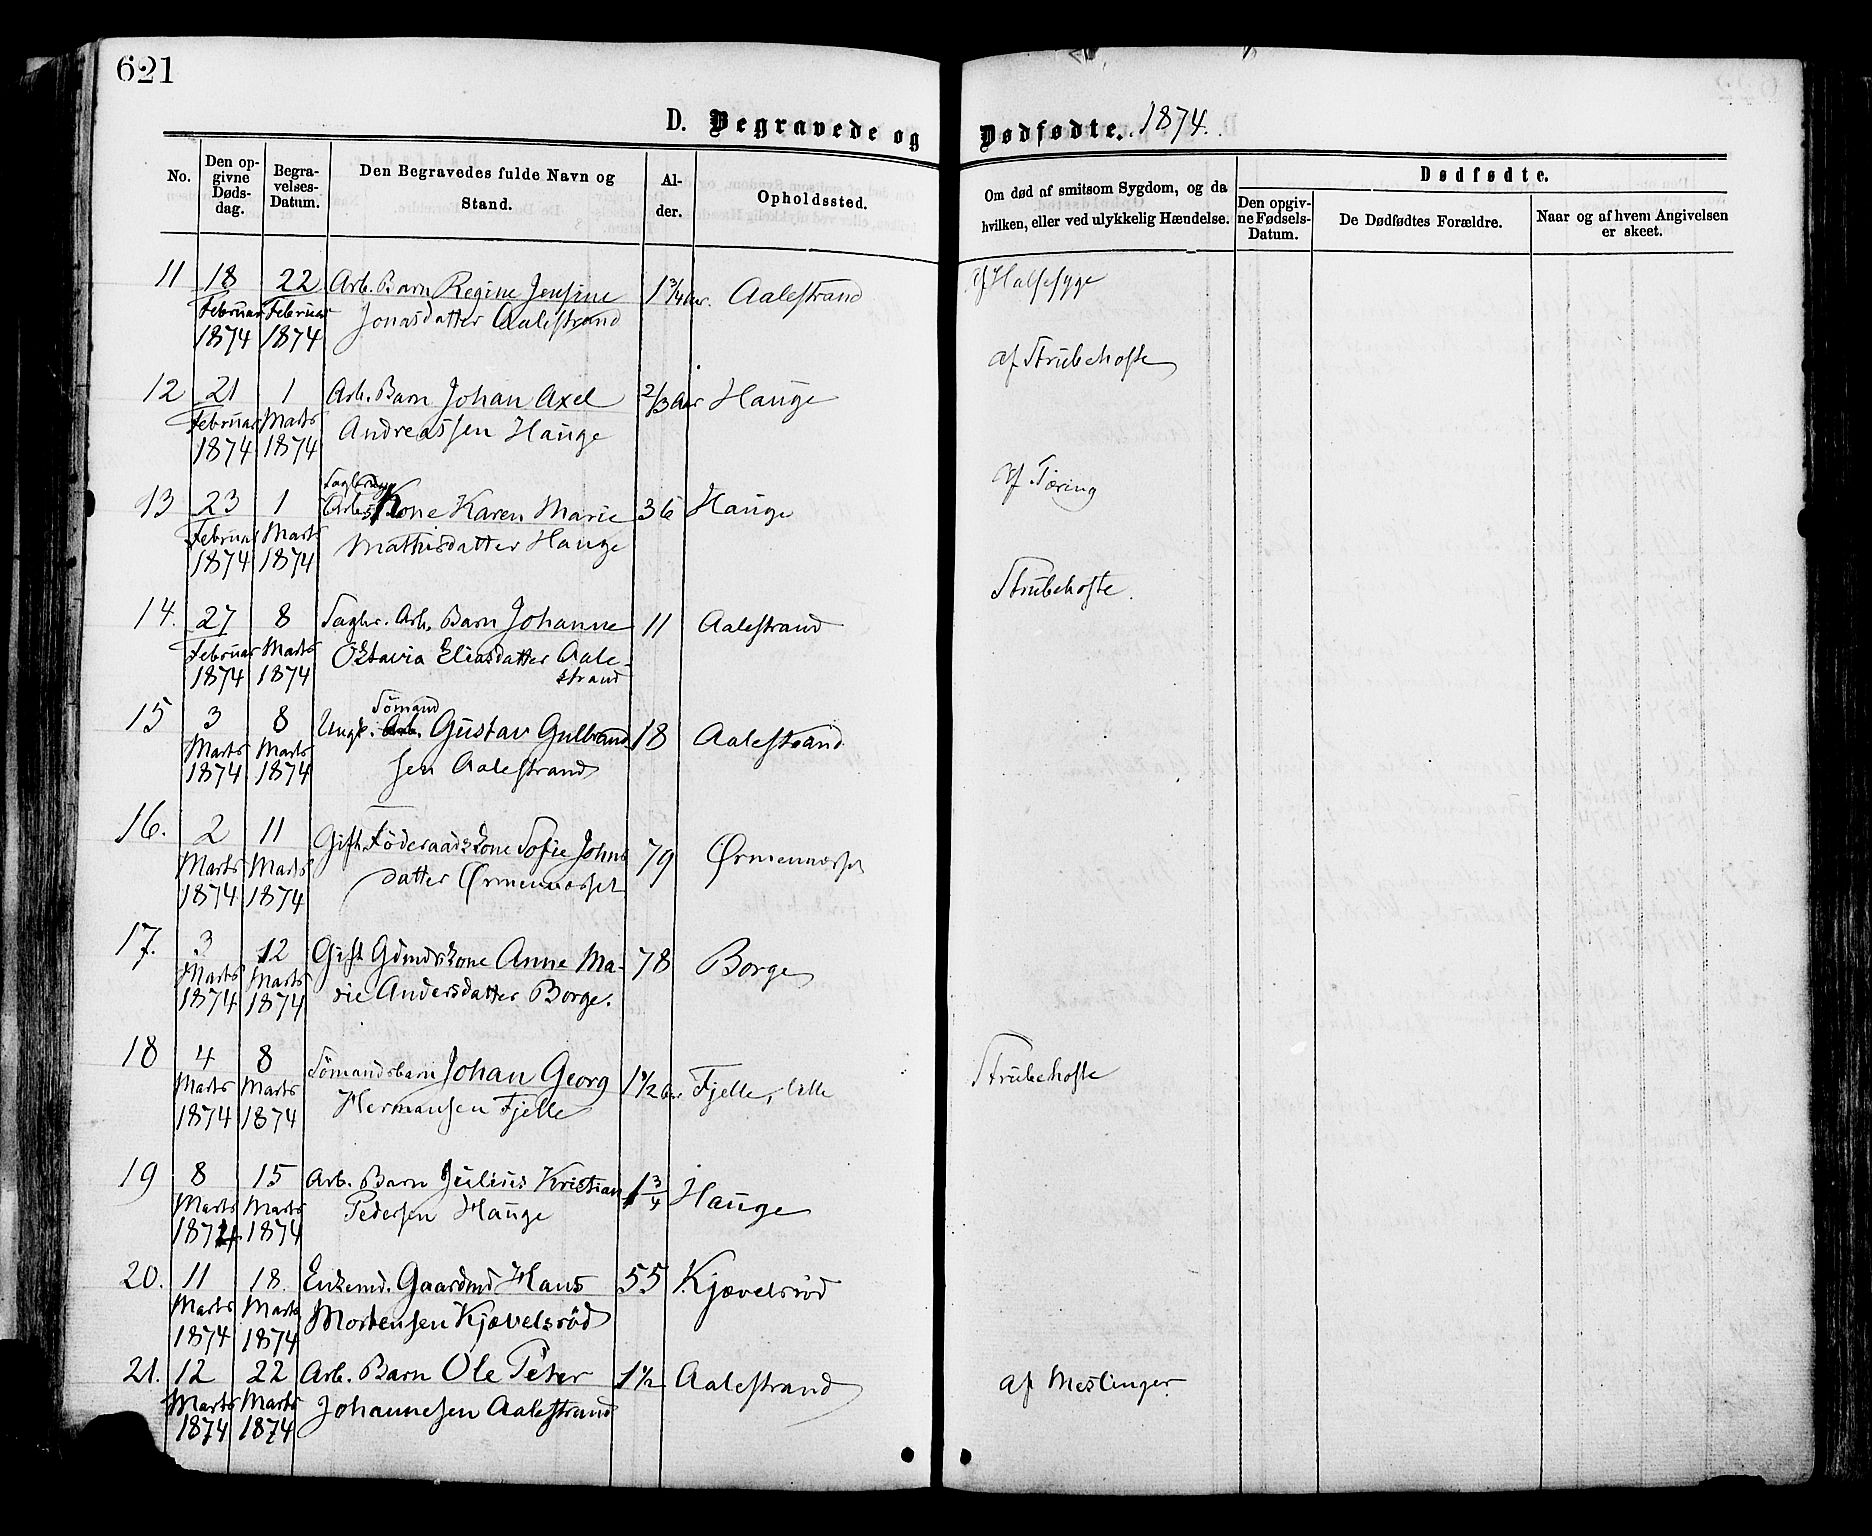 621
D. Begravede og Dødfødte. 1874.
No.
Den op-
givne
Døds-
dag.
Begra-
velses-
Datum.
Den Begravedes fulde Navn og
Stand.
Al-
der.
Opholdssted.
Om død af smitsom Sygdom, og da
hvilken, eller ved ulykkelig Hændelse.
Dødfødte.
Den opgiv-
ne Fødsels-
Datum.
De Dødfødtes Forældre.
Naar og af hvem Angivelsen
er skeet.
11 18 22 Arb. Barn Regine Jensine 1 3/4 Aar. Aalestrand af Halsesyge
Februar Februar Jonasdatter Aalestrand
1874 1874
af Strubehoste
12 21 1 Arb. Barn Johan Axel 2/3 Aar Hauge
Februar Marts Andreassen Hauge
1874 1874
af Tæring
Sagbrugs
13 23 1 Arbs Kone Karen Marie 36 Hauge
Februar Marts Mathisdatter Hauge
1874 1874
Strubehoste.
14. 27 8 Sagbr. Arb. Barn Johanne 11 Aalestrand
Februar Marts Oktavia Eliasdatter Aale-
1874 1874 strand
Sömand
15 3 8 Ungk. Arb. Gustav Gulbrand 18 Aalestrand
Marts Marts sen Aalestrand
1874 1874
16. 2 11 Gift Föderaadskone Sofie Johns 79 Ørmennæsset
Marts Marts datter Ørmennæsset
1874 1874
17. 3 12 Gift Gdmdskone Anne Ma- 78 Borge
Marts Marts rie Andersdatter Borge.
1874 1874
18 4 8 Sömandsbarn Johan Georg 1 1/2 Aar Fjelle, lille Strubehoste
Marts Marts Hermansen Fjelle
1874 1874
19 8 15 Arb. Barn Julius Kristian 1 3/4 Hauge
Marts Marts Pedersen Hauge
1874 1874
20. 11 18. Enkemd. Gaardmd Hans 55 Kjævelsröd
Marts Marts Mortensen Kjævelsröd
1874 1874
21. 12 22 Arb. Barn Ole Peter 1 1/2 Aalestrand af Meslinger
Marts Marts Johannesen Aalestrand
1874 1874